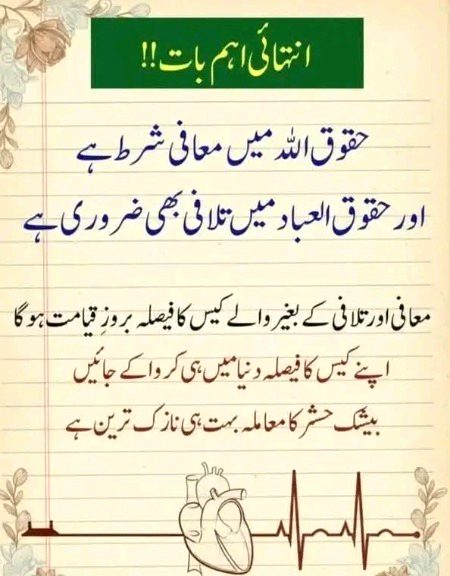 انتہائی اہم بات !!
حقوق اللہ میں معافی شرط ہے
اور حقوق العباد میں تلافی بھی ضروری ہے
معافی اور تلافی کے بغیر والے کیس کا فیصلہ بروزِ قیامت ہوگا
اپنے کیس کا فیصلہ دنیا میں ہی کروا کے جائیں
بیشک حشر کا معاملہ بہت ہی نازک ترین ہے